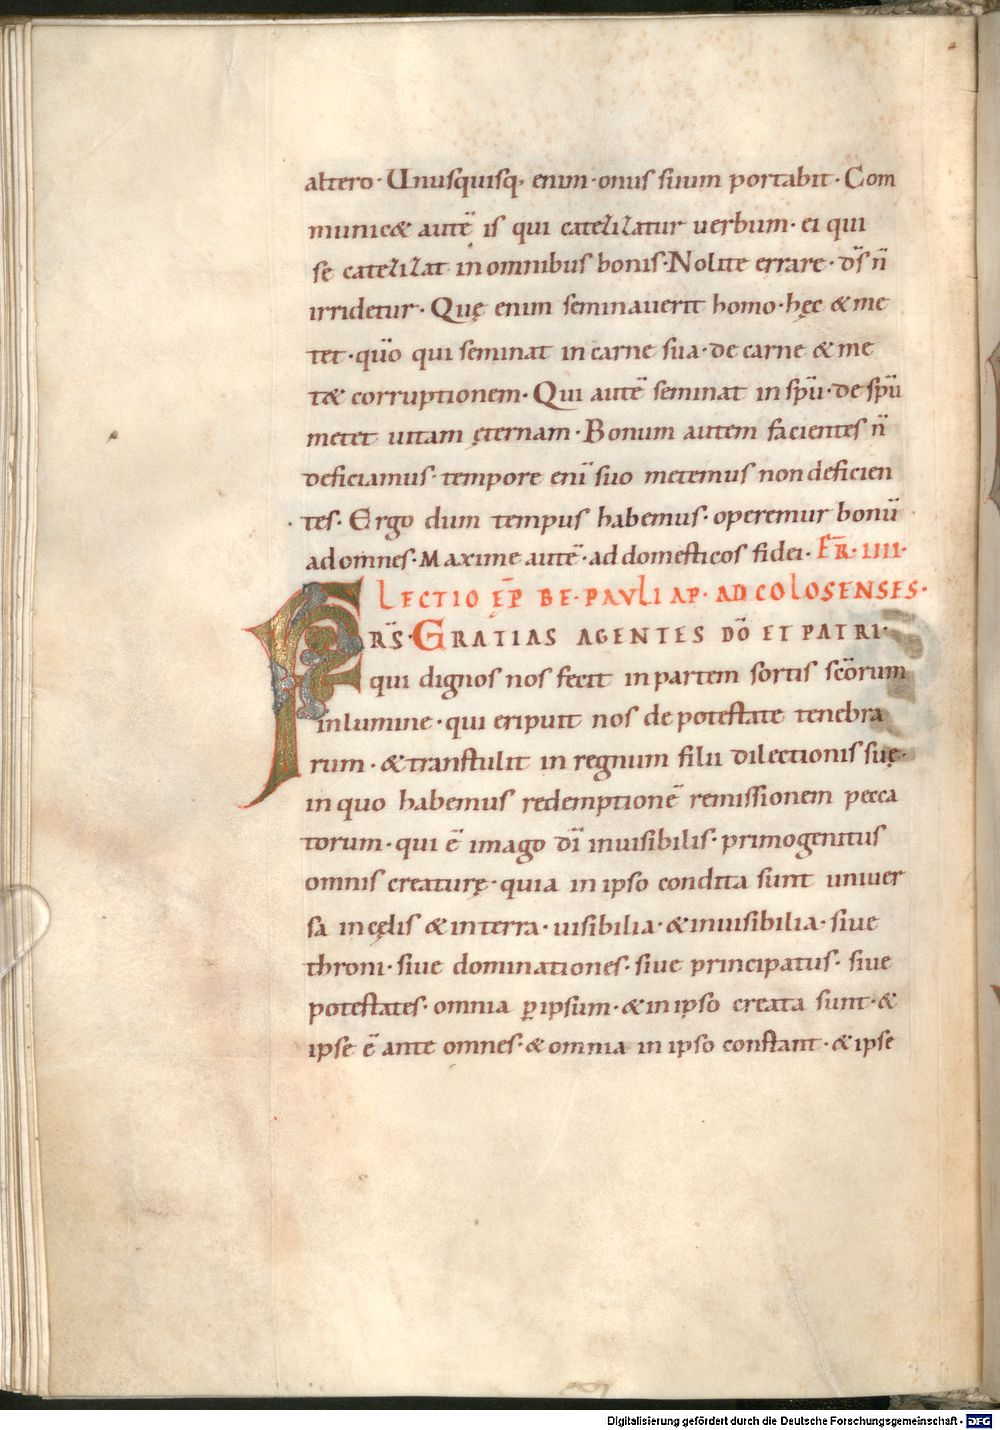 altero· Unusquisq, enim·onus suum portabit· Com
munic& autē is qui catezizatur uerbum· ei qui
se catezizat in omnibus bonis· Nolite errare· dˉs nˉ
irridetur· Quę enim seminauerit homo· hęc & me
tet· quˉo qui seminat in carne sua· de carne & me
t& corruptionem· Qui autē seminat in spˉu· de spˉu
metet uitam ęternam· Bonum autem facientes nˉ
deficiamus· tempore enī suo metemus non deficien
tes· Ergo dum tempus habemus· operemur bonū
ad omnes· Maxime autē· ad domesticos fidei· FˉR· IIII·
LECTIO EPˉ BE· PAULI AP· AD COLOSENSES·
FRˉS· GRATIAS AGENTES DˉO ET PATRI·
qui dignos nos fecit in partem sortis scˉorum
in lumine· qui eripuit nos de potestate tenebra
rum· & transtulit in regnum filii dilectionis suę·
in quo habemus redemptionē remissionem pecca
torum· qui ē imago dˉi inuisibilis· primogenitus
omnis creaturę· quia in ipso condita sunt uniuer
sa in cęlis & in terra· uisibilia· & inuisibilia· siue
throni· siue dominationes· siue principatus· siue
potestates· omnia ꝑ ipsum· & in ipso creata sunt· &
ipse ē ante omnes· & omnia in ipso constant· & ipse
Digitalisierung gefördert durch die Deutsche Forschungsgemeinschaft - DFG